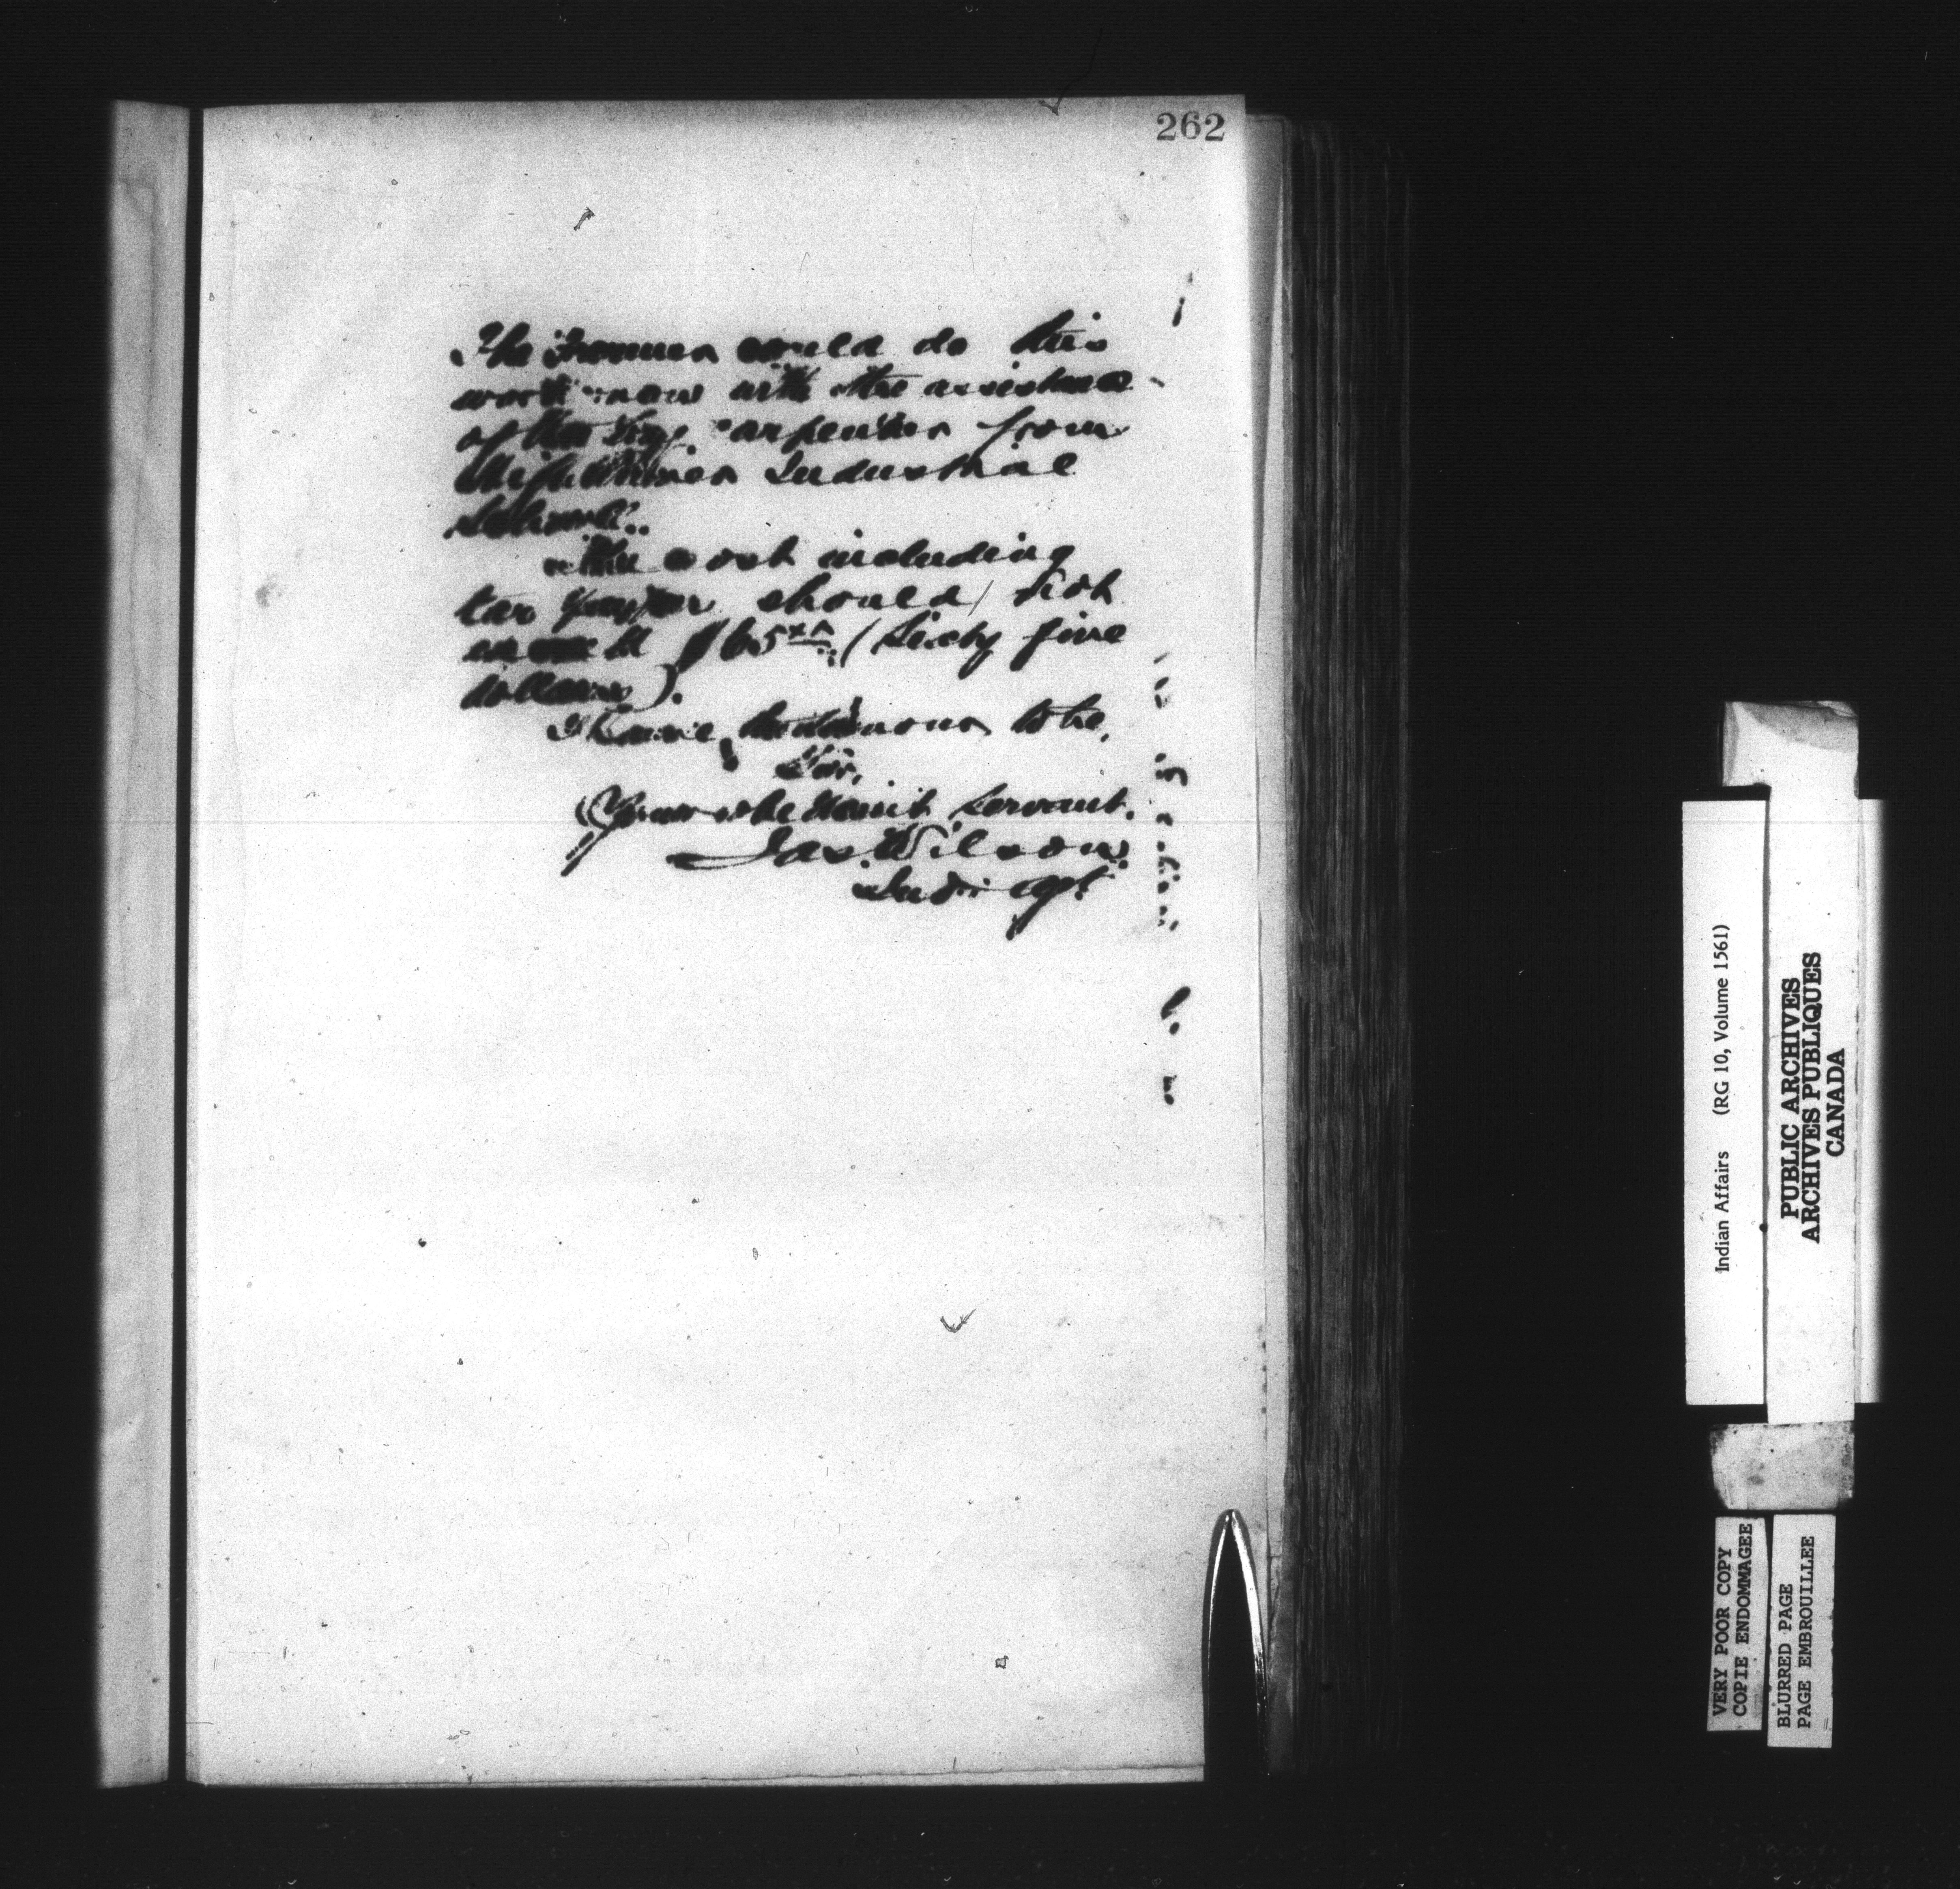 262
The Farmer could do this
work now with the assistance
of the carpenter from
High River Industrial
School.
The cost including
tar paper should not
exceed $65 xx (Sixty five
dollars).
I have the honour to be,
Sir,
Your obedient servant.
Jas. Wilson
Ind. Agt
Indian Affairs (RG 10, Volume 1561)
PUBLIC ARCHIVES
ARCHIVES PUBLIQUES
CANADA
VERY POOR COPY
COPIE ENDOMMAGEE
BLURRED PAGE
PAGE EMBROUILLEE